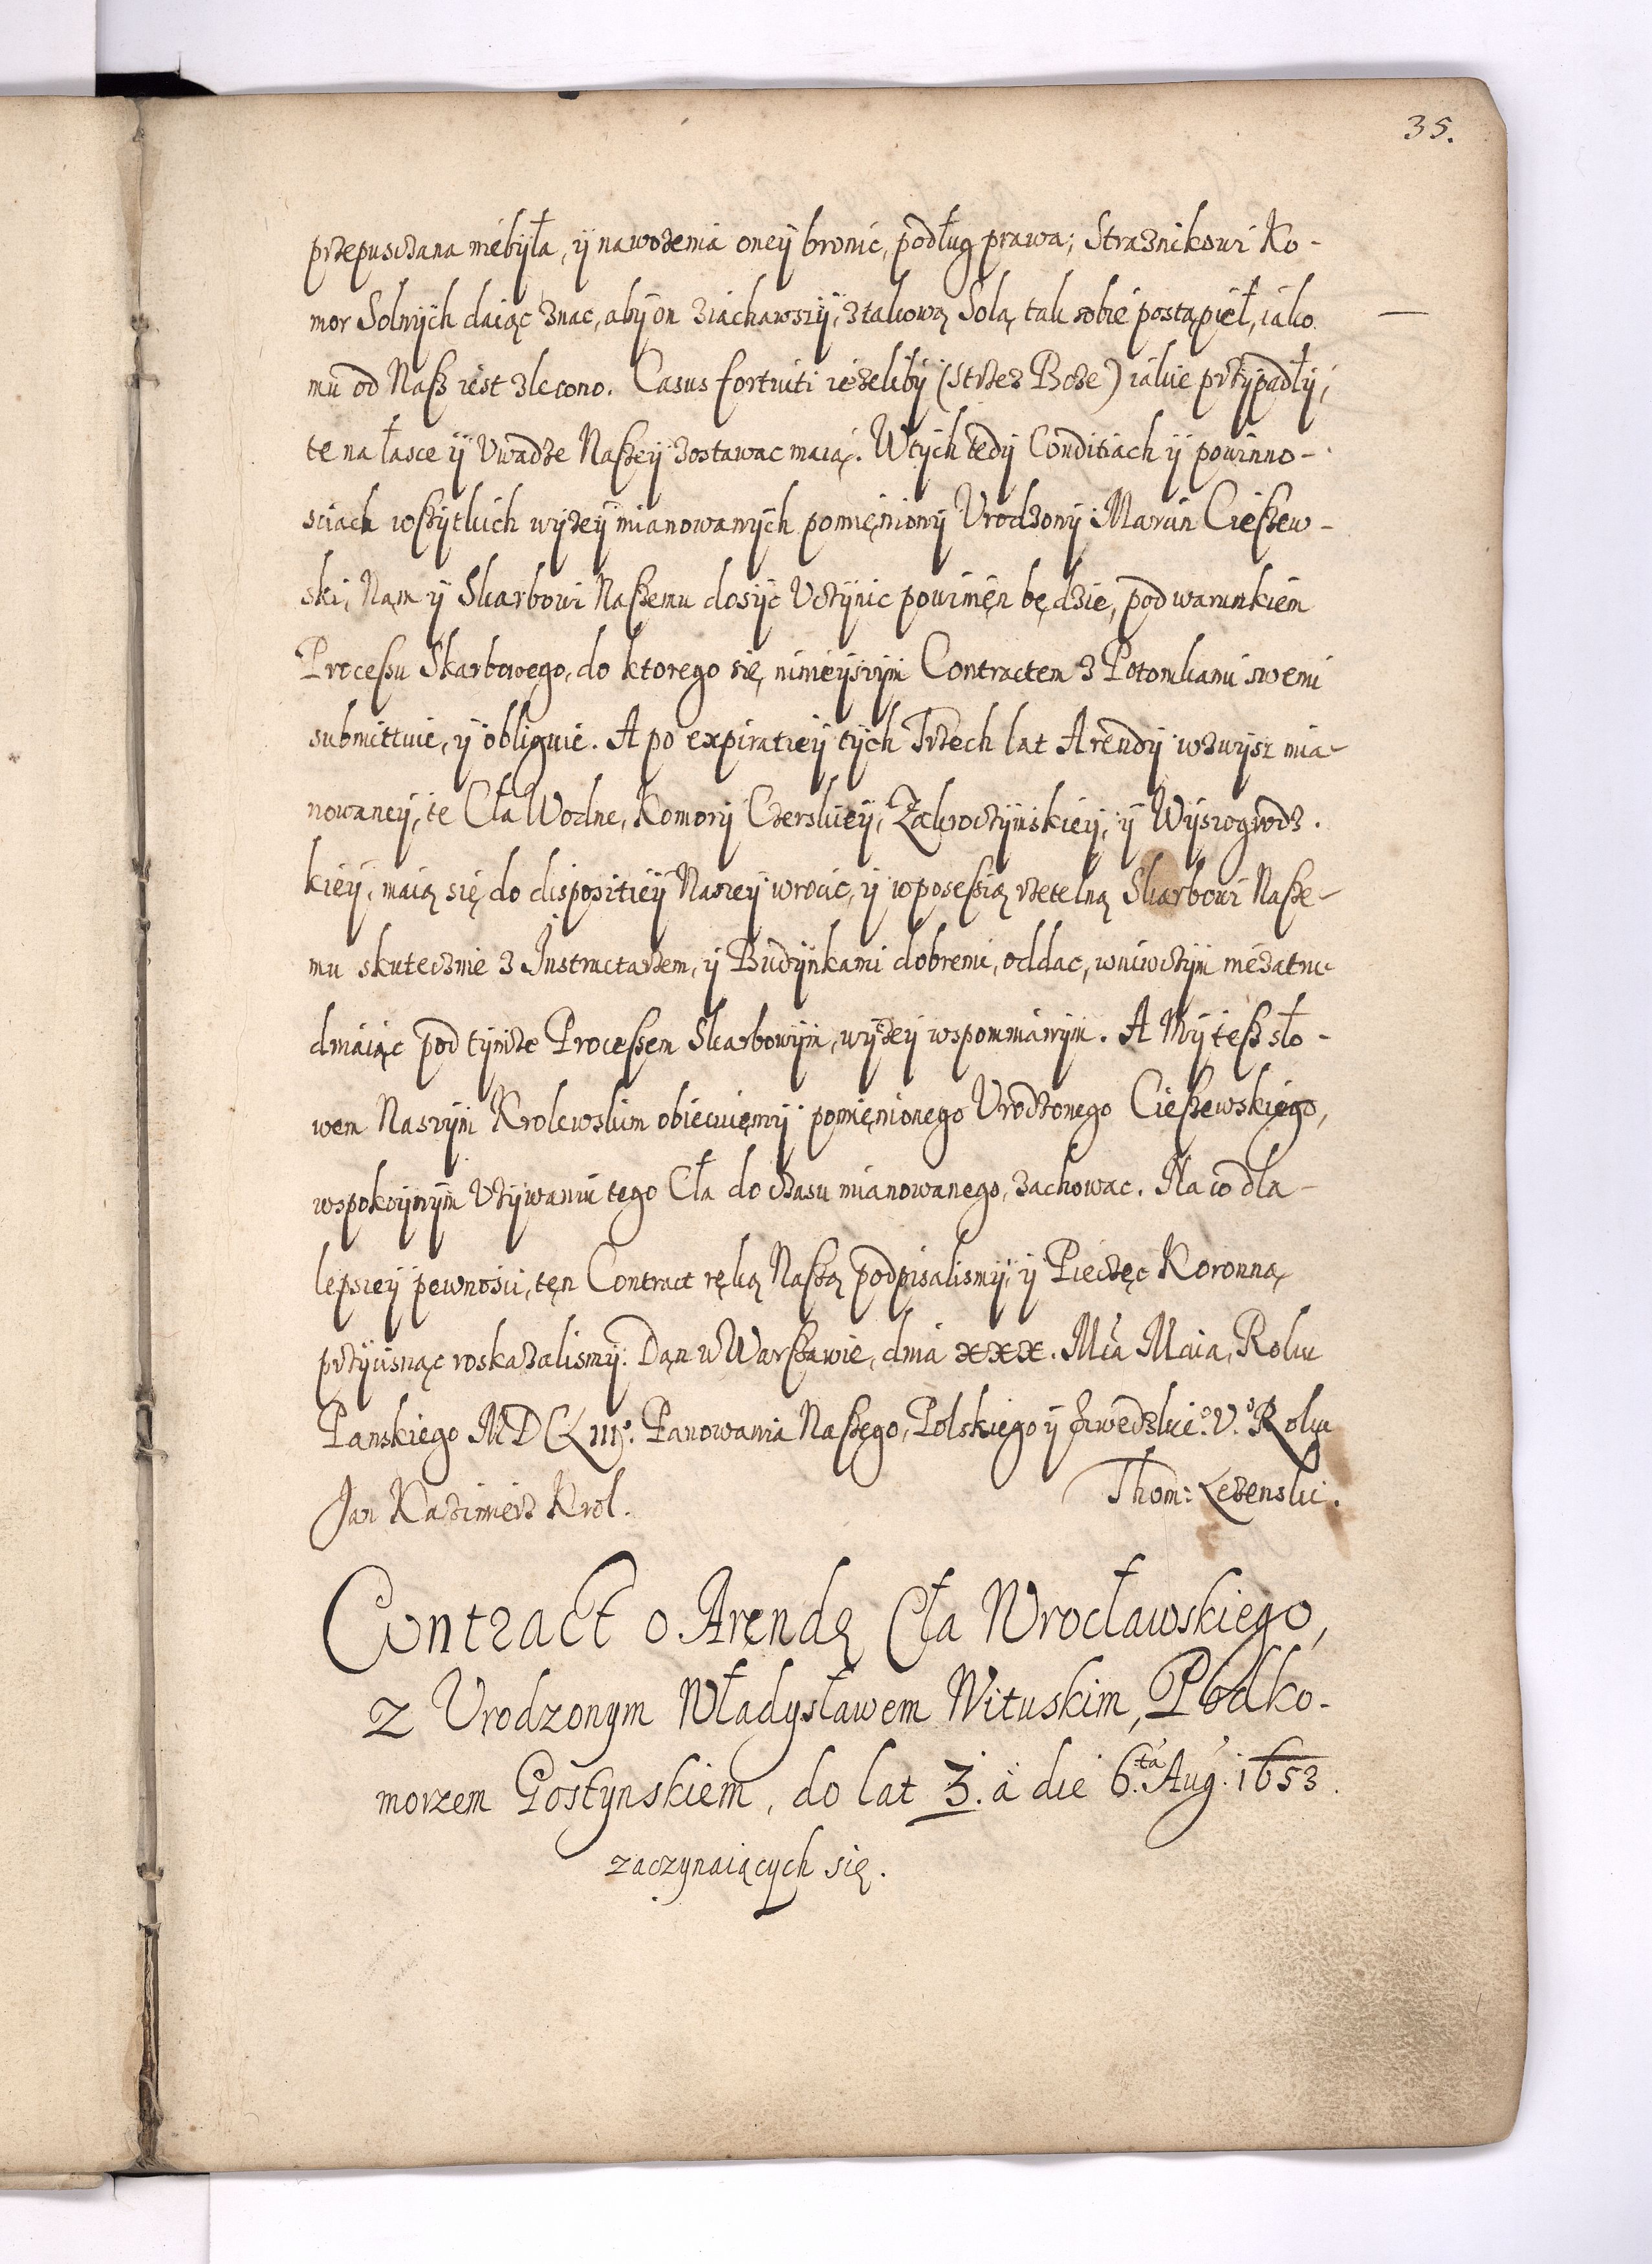 35.
przepusczana niebyła, ÿ nawożenia oneÿ bronic, podług prawa; Straznikowi Ko-
mor Solnÿch daiąc znac, abÿ on ziachawszÿ, ztakową Solą tak sobie postąpieł, iako
mu od Naß iest zlecono. Casus fortuiti ieżelibÿ (strzez Boże) iakie przÿpadłÿ,
te na łasce ÿ Uwadze Naßeÿ zostawac maią. Wtÿch tedÿ Conditiach ÿ powinno-
sciach wßÿtkich wÿżeÿ mianowanÿch pomięnionÿ Urodzonÿ Marcin Cießew-
ski, Nąm ÿ Skarbowi Naßemu dosÿc Uczÿnic powinięn będzie, pod warunkiem
Proceßu Skarbowego, do ktorego się, ninieÿszÿm Contractem z Potomkami swemi
submittuie, ÿ obliguie. A po expiratieÿ tÿch Trzech lat Arendÿ wzwÿsz mia-
nowaneÿ, te Cła Wodne, Komorÿ Czerskieÿ, Zakroczÿmskieÿ, ÿ Wÿszogrodz.
kieÿ, maią się do dispositieÿ Naszeÿ wrocic, ÿ wposeßią rzetelną Skarbowi Naße-
mu skutecznie z Instructarzem, ÿ Budÿnkami dobremi, oddac, wniwczÿm niezatru-
dniaiąc pod tÿmże Proceßem Skarbowÿm, wÿżeÿ wspomnianÿm. A Mÿ teß sło-
wem Naszÿm Krolewskim obiecuięmÿ pomięnionego Urodzonego Cießewskiego,
wspokoÿnÿm Użÿwaniu tego Cła do czasu mianowanego, zachowac. Na co dla
lepszeÿ pewnosci, tęn Contract ręką Naßą podpisalismÿ, ÿ Pieczęc Koronną
przÿcisnąc roskazalismÿ. Dąn w Warßawie, dnia XXX. Mca Maia, Roku
Panskiego MDCLIII°. Panowania Naßego, Polskiego ÿ Szwedzkie°. V.° Roku
Jan Kazimierz Krol. Thom: Leżenski.
Contract o Arendę Cła Wrocławskiego,
z Urodzonym Władysławem Wituskim, Podko-
morzem Gostynskiem, do lat 3. a die 6.ta Aug. 1653.
zaczynaiących się.